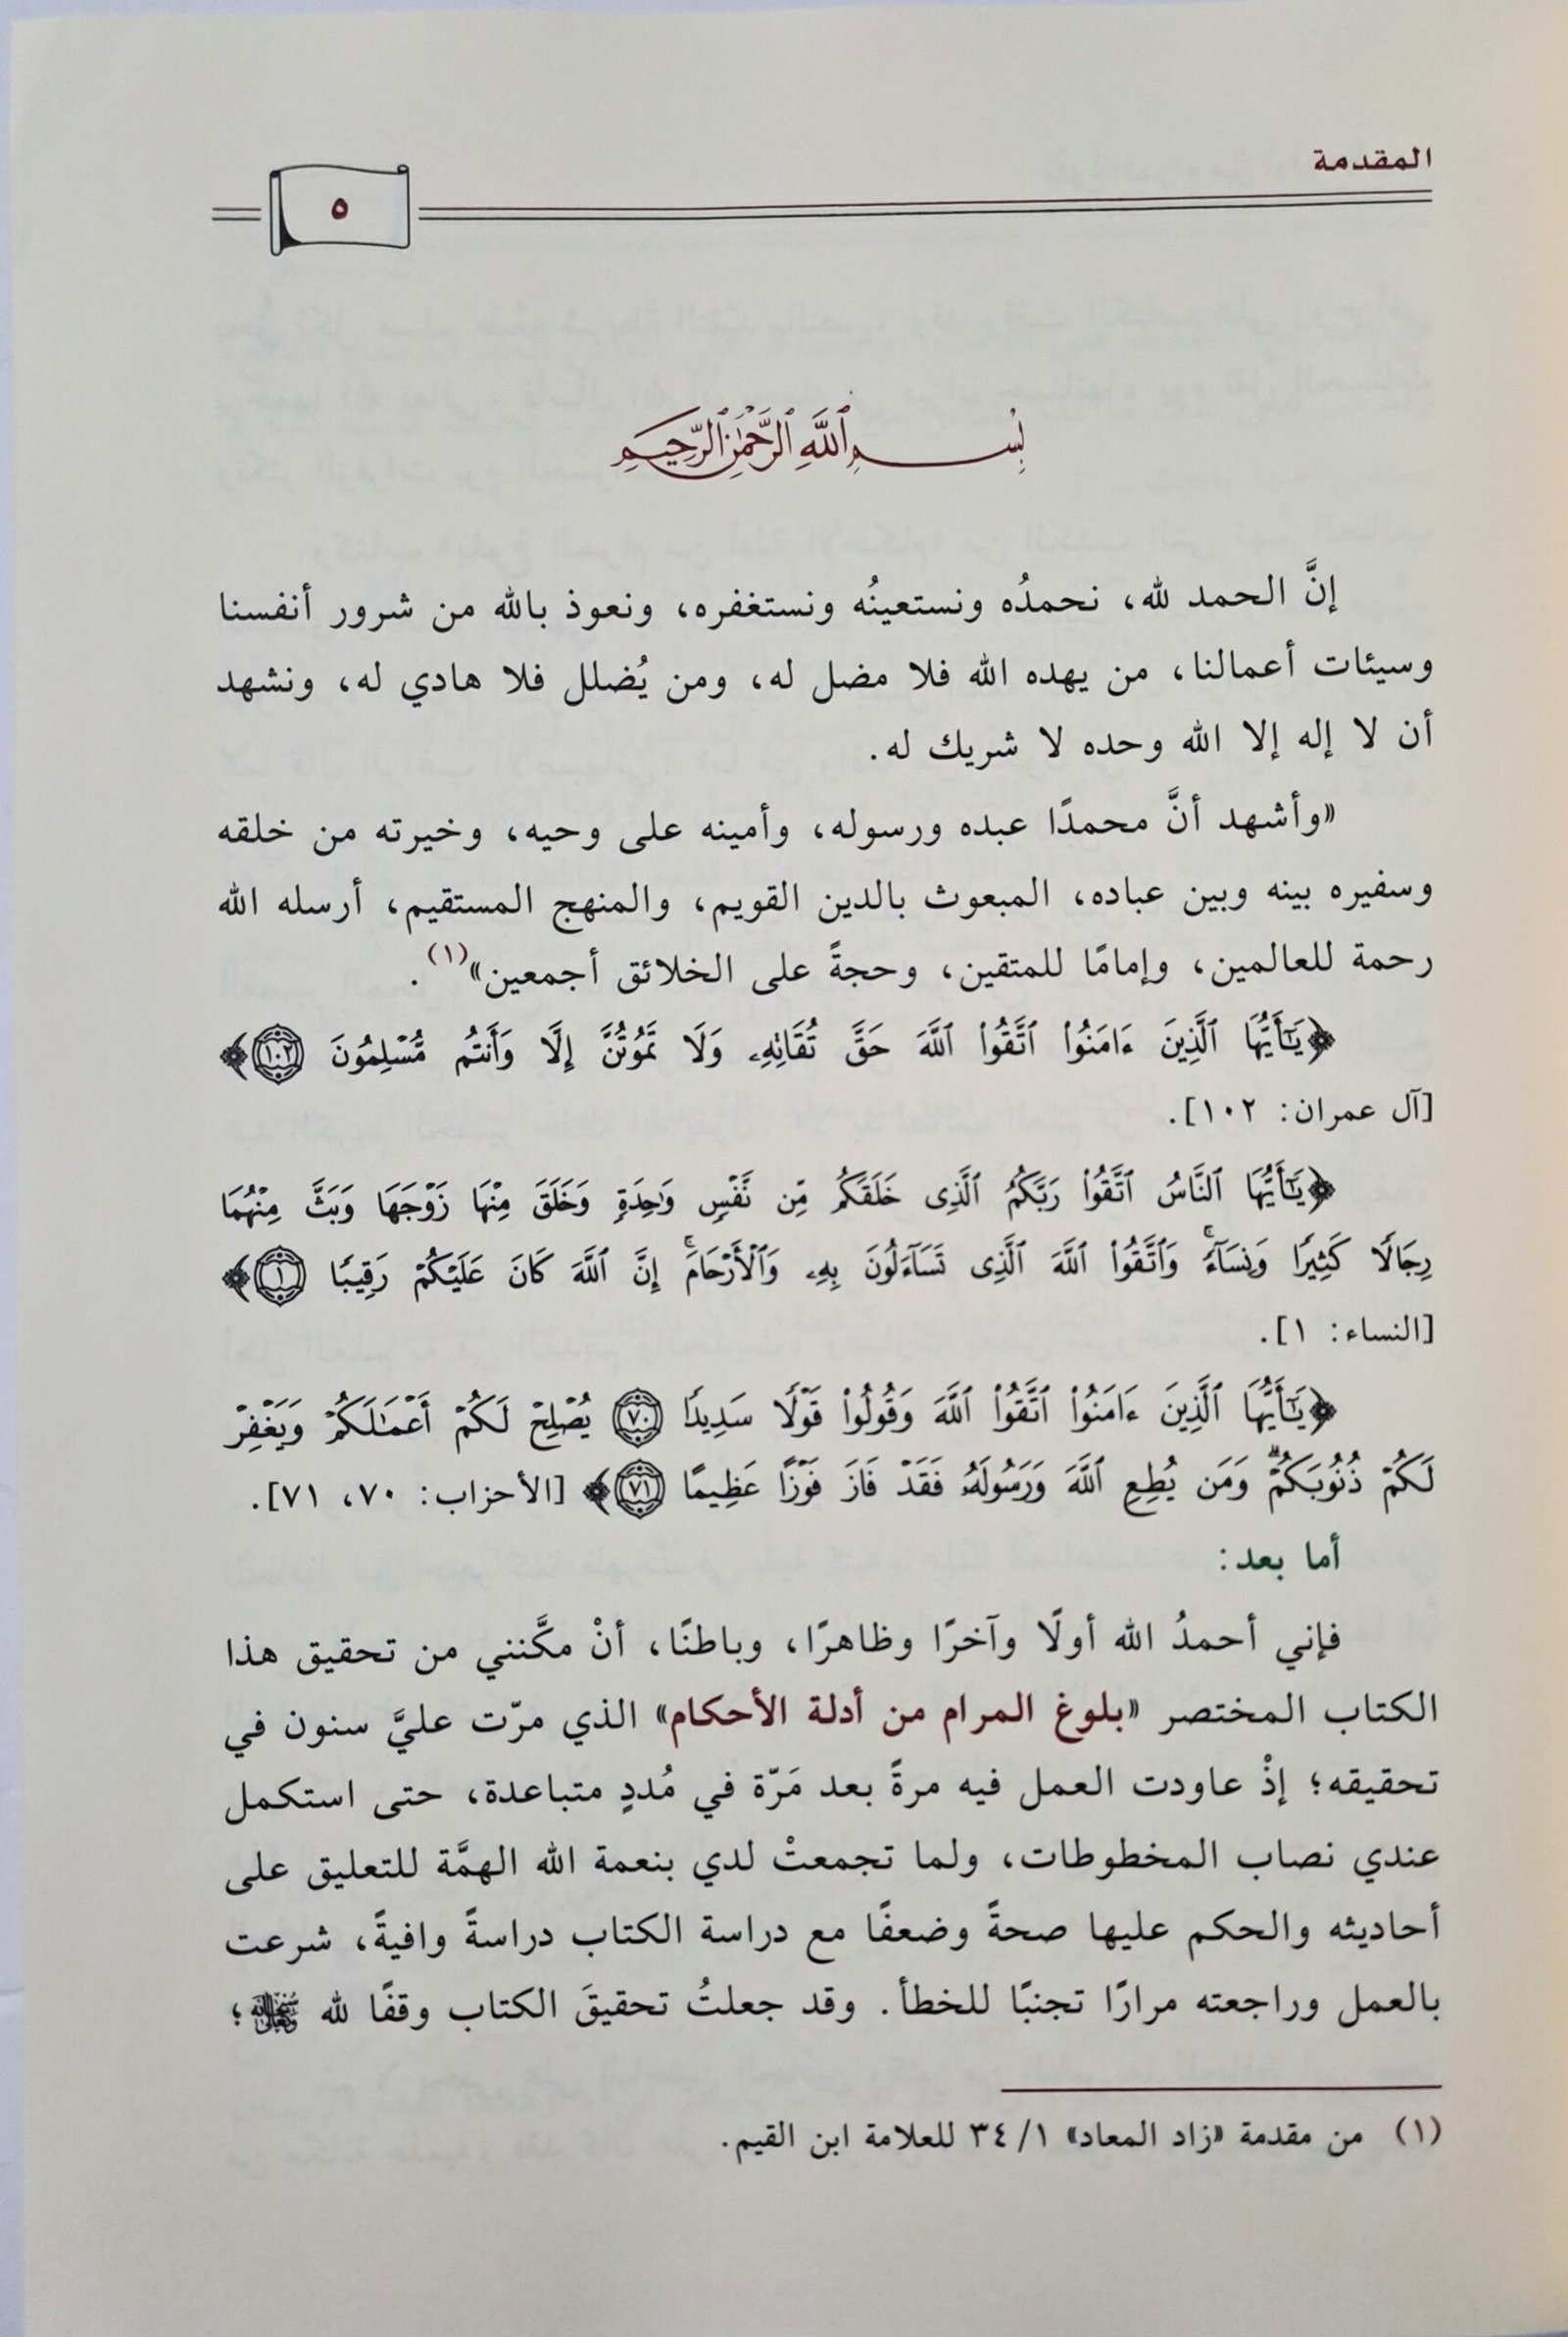 المقدمة
٥
بِسْمِ ٱللَّهِ ٱلرَّحْمَٰنِ ٱلرَّحِيمِ
إنَّ الحمد لله، نحمدُه ونستعينُه ونستغفره، ونعوذ بالله من شرور أنفسنا
وسيئات أعمالنا، من يهده الله فلا مضل له، ومن يُضلل فلا هادي له، ونشهد
أن لا إله إلا الله وحده لا شريك له.
«وأشهد أنَّ محمدًا عبده ورسوله، وأمينه على وحيه، وخيرته من خلقه
وسفيره بينه وبين عباده، المبعوث بالدين القويم، والمنهج المستقيم، أرسله الله
رحمة للعالمين، وإمامًا للمتقين، وحجةً على الخلائق أجمعين»(١).
﴿يَٰٓأَيُّهَا ٱلَّذِينَ ءَامَنُوا۟ ٱتَّقُوا۟ ٱللَّهَ حَقَّ تُقَاتِهِۦ وَلَا تَمُوتُنَّ إِلَّا وَأَنتُم مُّسْلِمُونَ ١٠٢﴾
[آل عمران: ١٠٢].
﴿يَٰٓأَيُّهَا ٱلنَّاسُ ٱتَّقُوا۟ رَبَّكُمُ ٱلَّذِى خَلَقَكُم مِّن نَّفْسٍ وَٰحِدَةٍ وَخَلَقَ مِنْهَا زَوْجَهَا وَبَثَّ مِنْهُمَا
رِجَالًا كَثِيرًا وَنِسَآءً ۚ وَٱتَّقُوا۟ ٱللَّهَ ٱلَّذِى تَسَآءَلُونَ بِهِۦ وَٱلْأَرْحَامَ ۚ إِنَّ ٱللَّهَ كَانَ عَلَيْكُمْ رَقِيبًا ١﴾
[النساء: ١].
﴿يَٰٓأَيُّهَا ٱلَّذِينَ ءَامَنُوا۟ ٱتَّقُوا۟ ٱللَّهَ وَقُولُوا۟ قَوْلًا سَدِيدًا ٧٠ يُصْلِحْ لَكُمْ أَعْمَٰلَكُمْ وَيَغْفِرْ
لَكُمْ ذُنُوبَكُمْ ۗ وَمَن يُطِعِ ٱللَّهَ وَرَسُولَهُۥ فَقَدْ فَازَ فَوْزًا عَظِيمًا ٧١﴾ [الأحزاب: ٧٠، ٧١].
أما بعد:
فإني أحمدُ الله أولًا وآخرًا وظاهرًا، وباطنًا، أنْ مكَّنني من تحقيق هذا
الكتاب المختصر «بلوغ المرام من أدلة الأحكام» الذي مرّت عليَّ سنون في
تحقيقه؛ إذْ عاودت العمل فيه مرةً بعد مَرّة في مُددٍ متباعدة، حتى استكمل
عندي نصاب المخطوطات، ولما تجمعتْ لدي بنعمة الله الهمَّة للتعليق على
أحاديثه والحكم عليها صحةً وضعفًا مع دراسة الكتاب دراسةً وافيةً، شرعت
بالعمل وراجعته مرارًا تجنبًا للخطأ. وقد جعلتُ تحقيقَ الكتاب وقفًا لله سُبْحَانَهُ وَتَعَالَى؛
(١) من مقدمة «زاد المعاد» ٣٤/١ للعلامة ابن القيم.